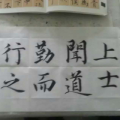 上士
聞道
勤而
行之